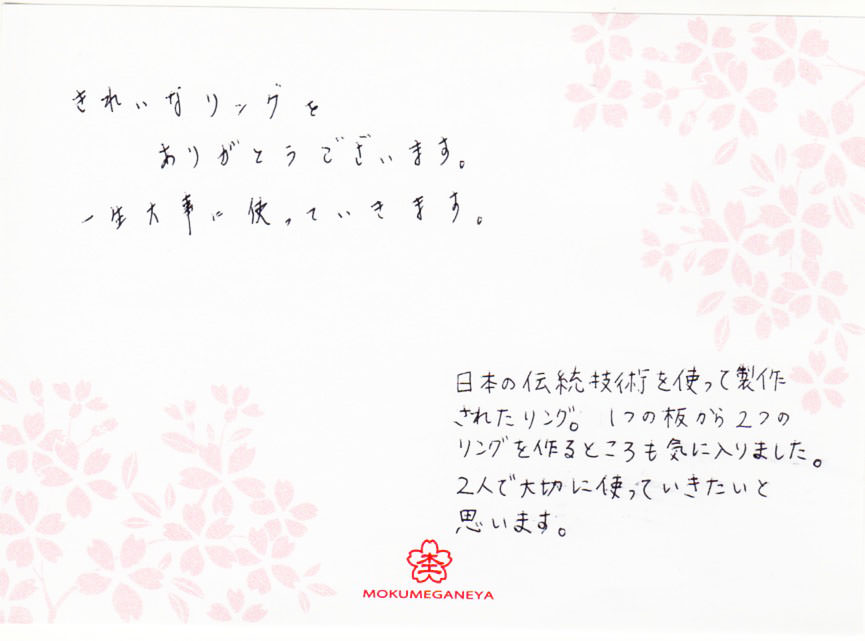 きれいなリングを
ありがとうございます。
一生大事に使っていきます。
日本の伝統技術を使って製作
されたリング。1つの板から2つの
リングを作るところも気に入りました。
2人で大切に使っていきたいと
思います。
杢
MOKUMEGANEYA